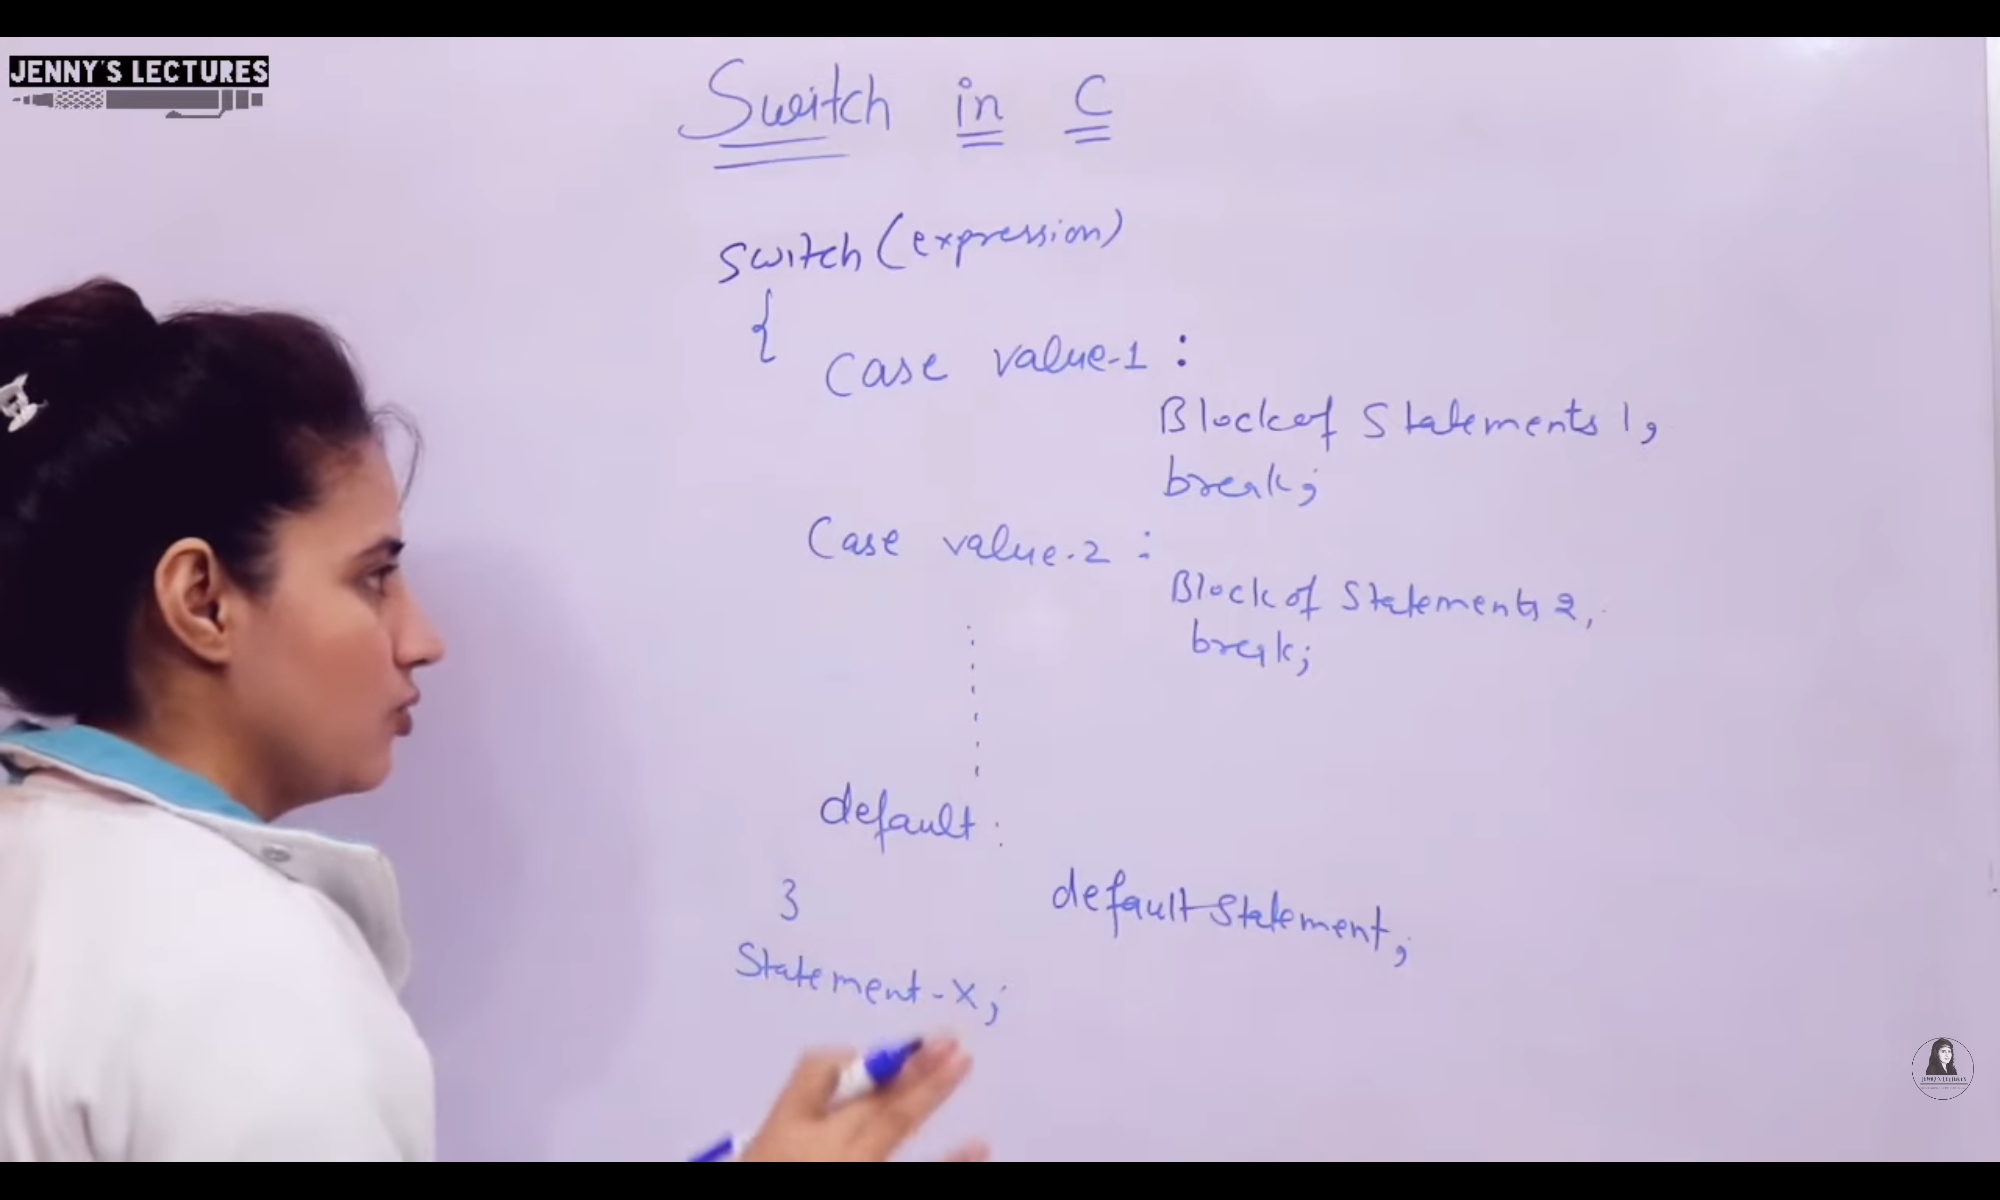 JENNY'S LECTURES
Switch in C
switch (expression)
{
Case value-1 :
Block of Statements 1,
break;
Case value-2 :
Block of Statements 2,
break;
default :
}
default Statement;
Statement-X;
JENNY'S LECTURES